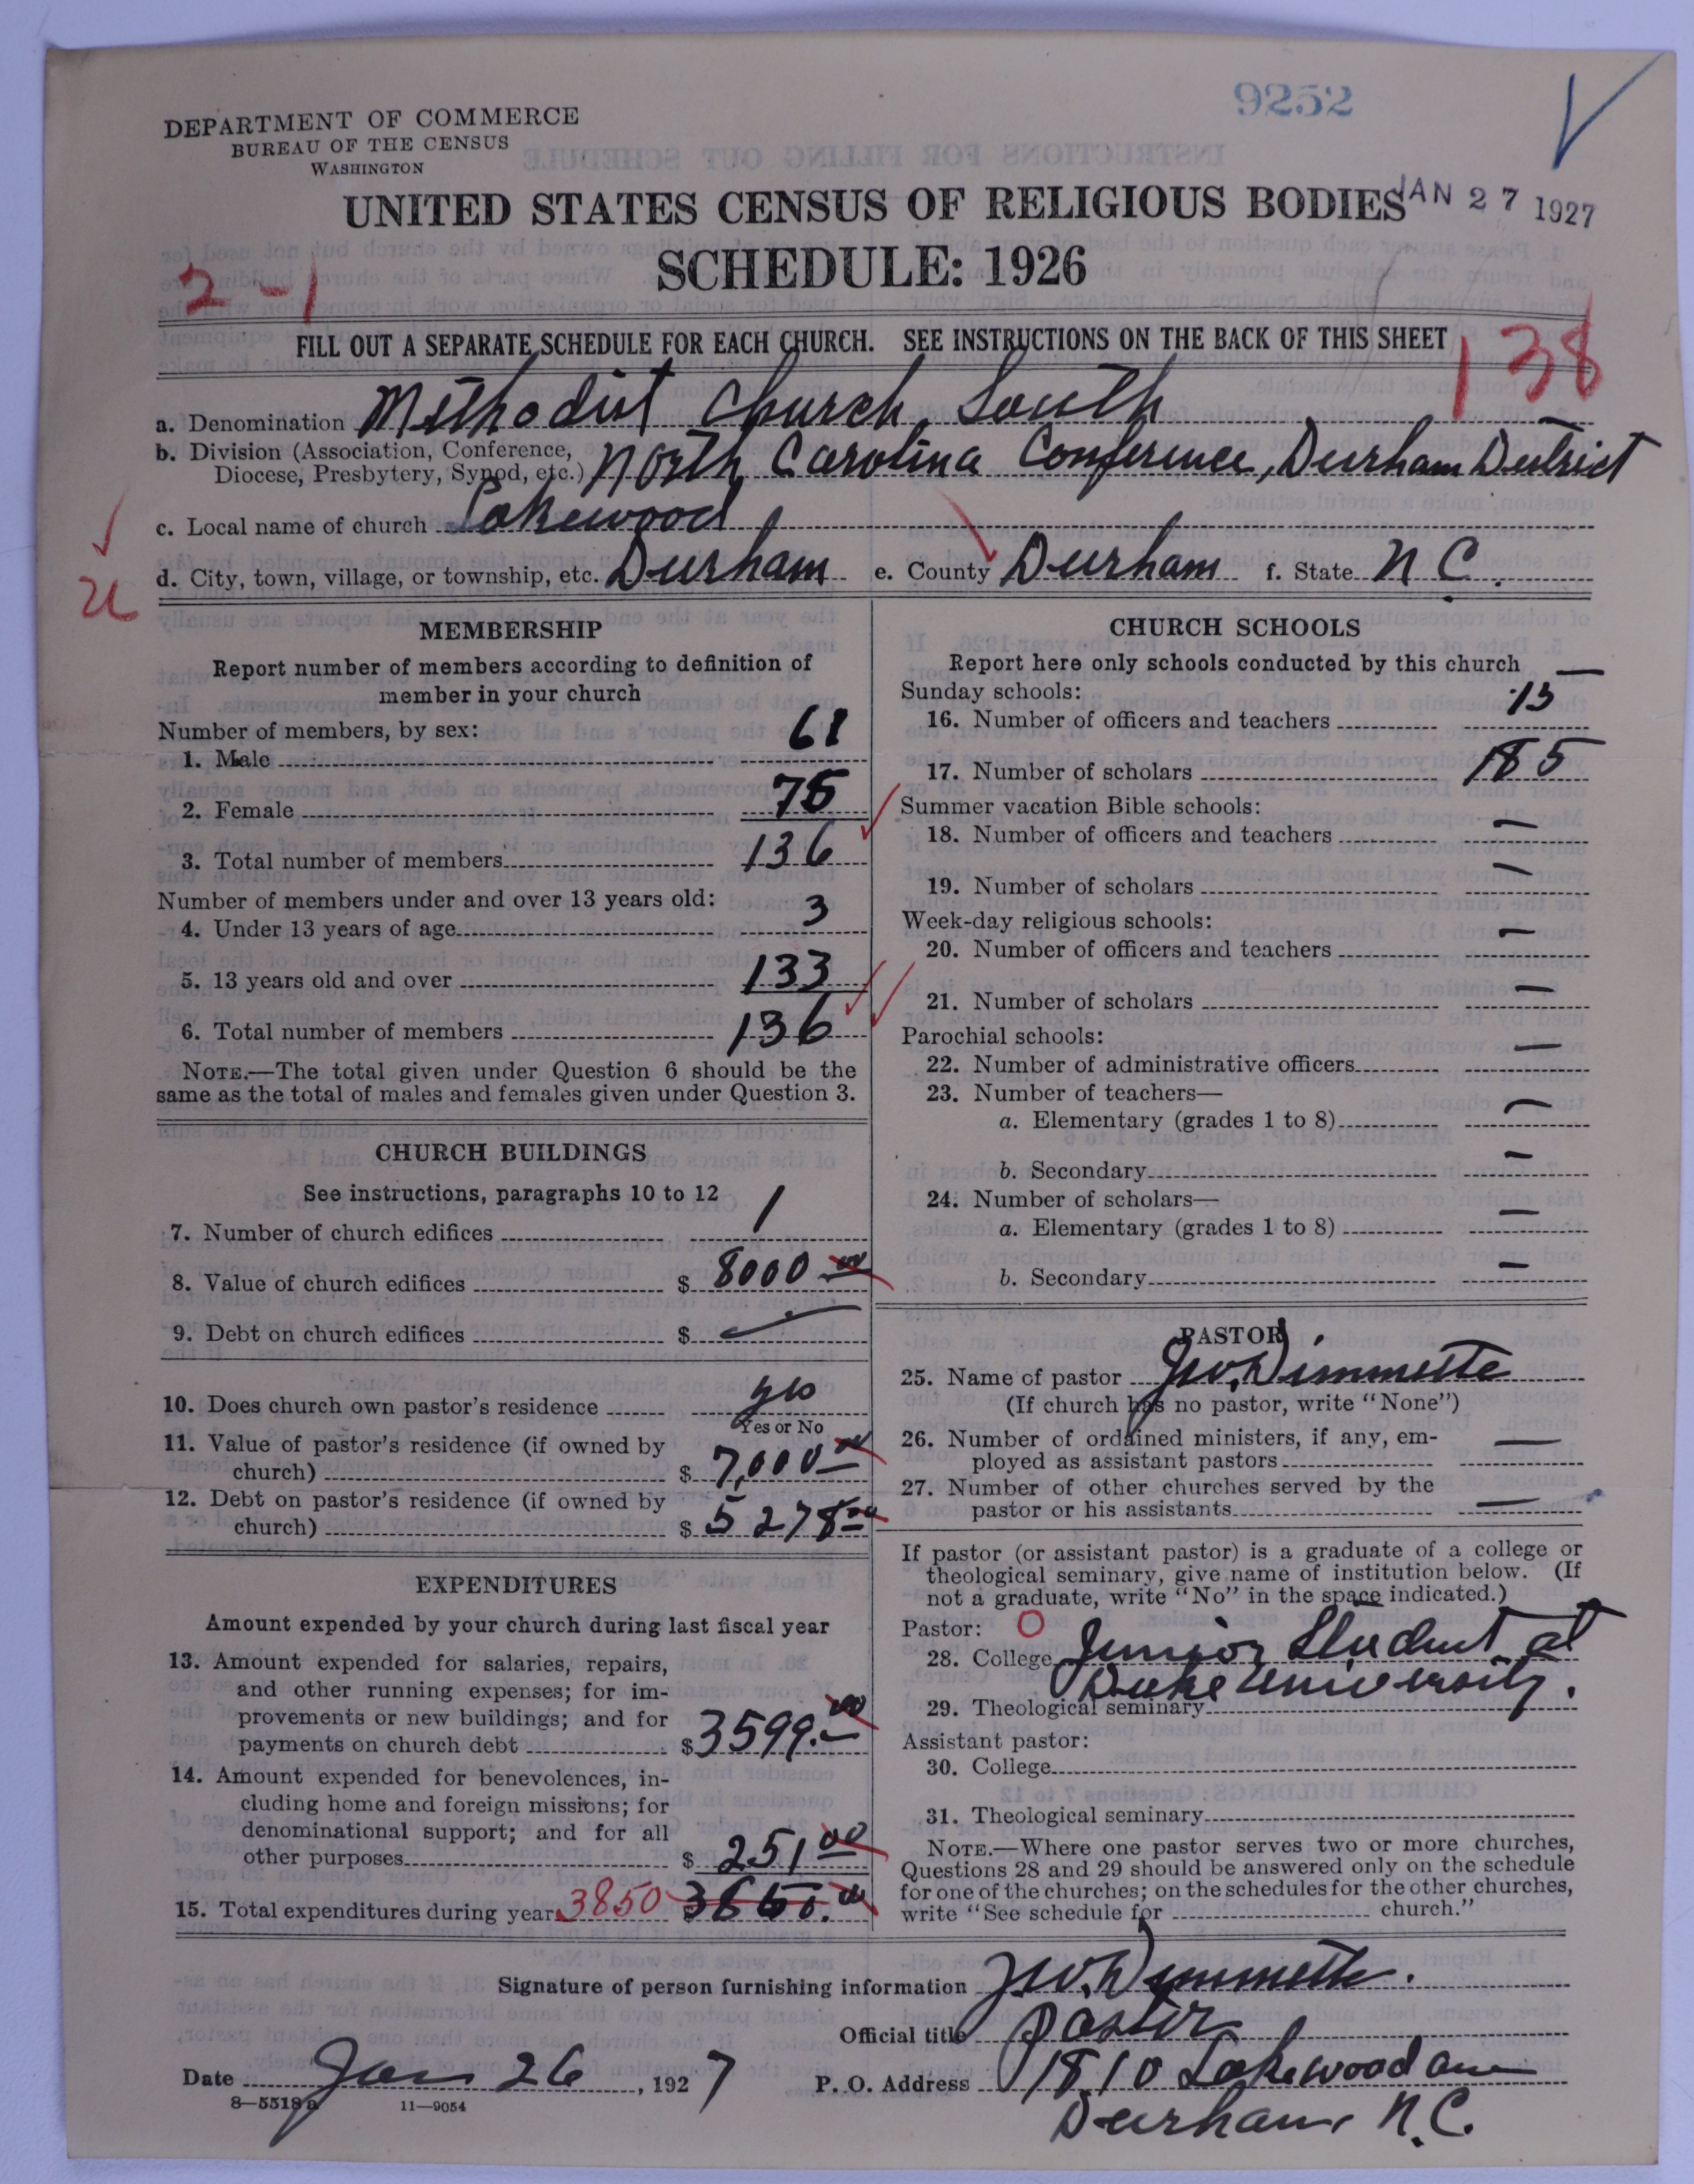 9252
DEPARTMENT OF COMMERCE
BUREAU OF THE CENSUS
WASHINGTON
UNITED STATES CENSUS OF RELIGIOUS BODIES
JAN 27 1927
SCHEDULE: 1926
2-1
FILL OUT A SEPARATE SCHEDULE FOR EACH CHURCH. SEE INSTRUCTIONS ON THE BACK OF THIS SHEET
138
a. Denomination Methodist Church South
b. Division (Association, Conference, Diocese, Presbytery, Synod, etc.) North Carolina Conference, Durham District
c. Local name of church Lakewood
d. City, town, village, or township, etc. Durham e. County Durham f. State N C.
MEMBERSHIP
Report number of members according to definition of
member in your church
Number of members, by sex:
1. Male 61
2. Female 75
3. Total number of members 136
Number of members under and over 13 years old:
4. Under 13 years of age 3
5. 13 years old and over 133
6. Total number of members 136
NOTE.—The total given under Question 6 should be the
same as the total of males and females given under Question 3.
CHURCH BUILDINGS
See instructions, paragraphs 10 to 12
7. Number of church edifices 1
8. Value of church edifices $ 8000 00
9. Debt on church edifices $ —
10. Does church own pastor's residence yes
Yes or No
11. Value of pastor's residence (if owned by
church) $ 7,000 00
12. Debt on pastor's residence (if owned by
church) $ 5278 00
EXPENDITURES
Amount expended by your church during last fiscal year
13. Amount expended for salaries, repairs,
and other running expenses; for im-
provements or new buildings; and for
payments on church debt $ 3599.00
14. Amount expended for benevolences, in-
cluding home and foreign missions; for
denominational support; and for all
other purposes $ 251 00
15. Total expenditures during year 3850
CHURCH SCHOOLS
Report here only schools conducted by this church
Sunday schools:
16. Number of officers and teachers 15
17. Number of scholars 185
Summer vacation Bible schools:
18. Number of officers and teachers —
19. Number of scholars —
Week-day religious schools:
20. Number of officers and teachers —
21. Number of scholars —
Parochial schools:
22. Number of administrative officers —
23. Number of teachers—
a. Elementary (grades 1 to 8) —
b. Secondary —
24. Number of scholars—
a. Elementary (grades 1 to 8) —
b. Secondary —
PASTOR
25. Name of pastor Jno. Dimmette
(If church has no pastor, write "None")
26. Number of ordained ministers, if any, em-
ployed as assistant pastors —
27. Number of other churches served by the
pastor or his assistants —
If pastor (or assistant pastor) is a graduate of a college or
theological seminary, give name of institution below. (If
not a graduate, write "No" in the space indicated.)
Pastor:
28. College Junior Student at
Duke University.
29. Theological seminary
Assistant pastor:
30. College
31. Theological seminary
NOTE.—Where one pastor serves two or more churches,
Questions 28 and 29 should be answered only on the schedule
for one of the churches; on the schedules for the other churches,
write "See schedule for church."
Signature of person furnishing information Jno. Dimmette.
Official title Pastor
Date Jan 26, 1927 P. O. Address 1810 Lakewood ave
Durham, N.C.
8—5518a 11—9054